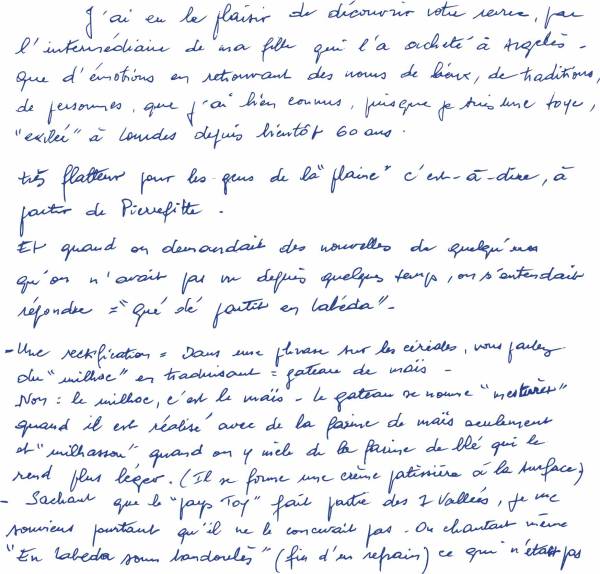 J'ai eu le plaisir de découvrir votre revue, par
l'intermédiaire de ma fille qui l'a acheté à Argelès -
que d'émotions en retrouvant des noms de lieux, de traditions,
de personnes, que j'ai bien connus, puisque je suis une toye,
"exilée" à Lourdes depuis bientôt 60 ans.
très flatteur pour les gens de la "plaine" c'est-à-dire, à
partir de Pierrefitte.
Et quand on demandait des nouvelles de quelqu'un
qu'on n'avait pas vu depuis quelques temps, on s'entendait
répondre = "qué dé partit en labéda" -
- Une rectification = Dans une phrase sur les céréales, vous parlez
du "milhoc" en traduisant = gateau de maïs -
Non : le milhoc, c'est le maïs - le gateau se nomme "mesturès"
quand il est réalisé avec de la farine de maïs seulement
et "milhassou" quand on y mêle de la farine de blé qui le
rend plus léger. (Il se forme une crème patissière à la surface)
- Sachant que le "pays Toy" fait partie des 7 Vallées, je me
souviens pourtant qu'il ne le concevait pas - On chantait même
"En Labeda soun landourlès" (fin d'un refrain) ce qui n'était pas